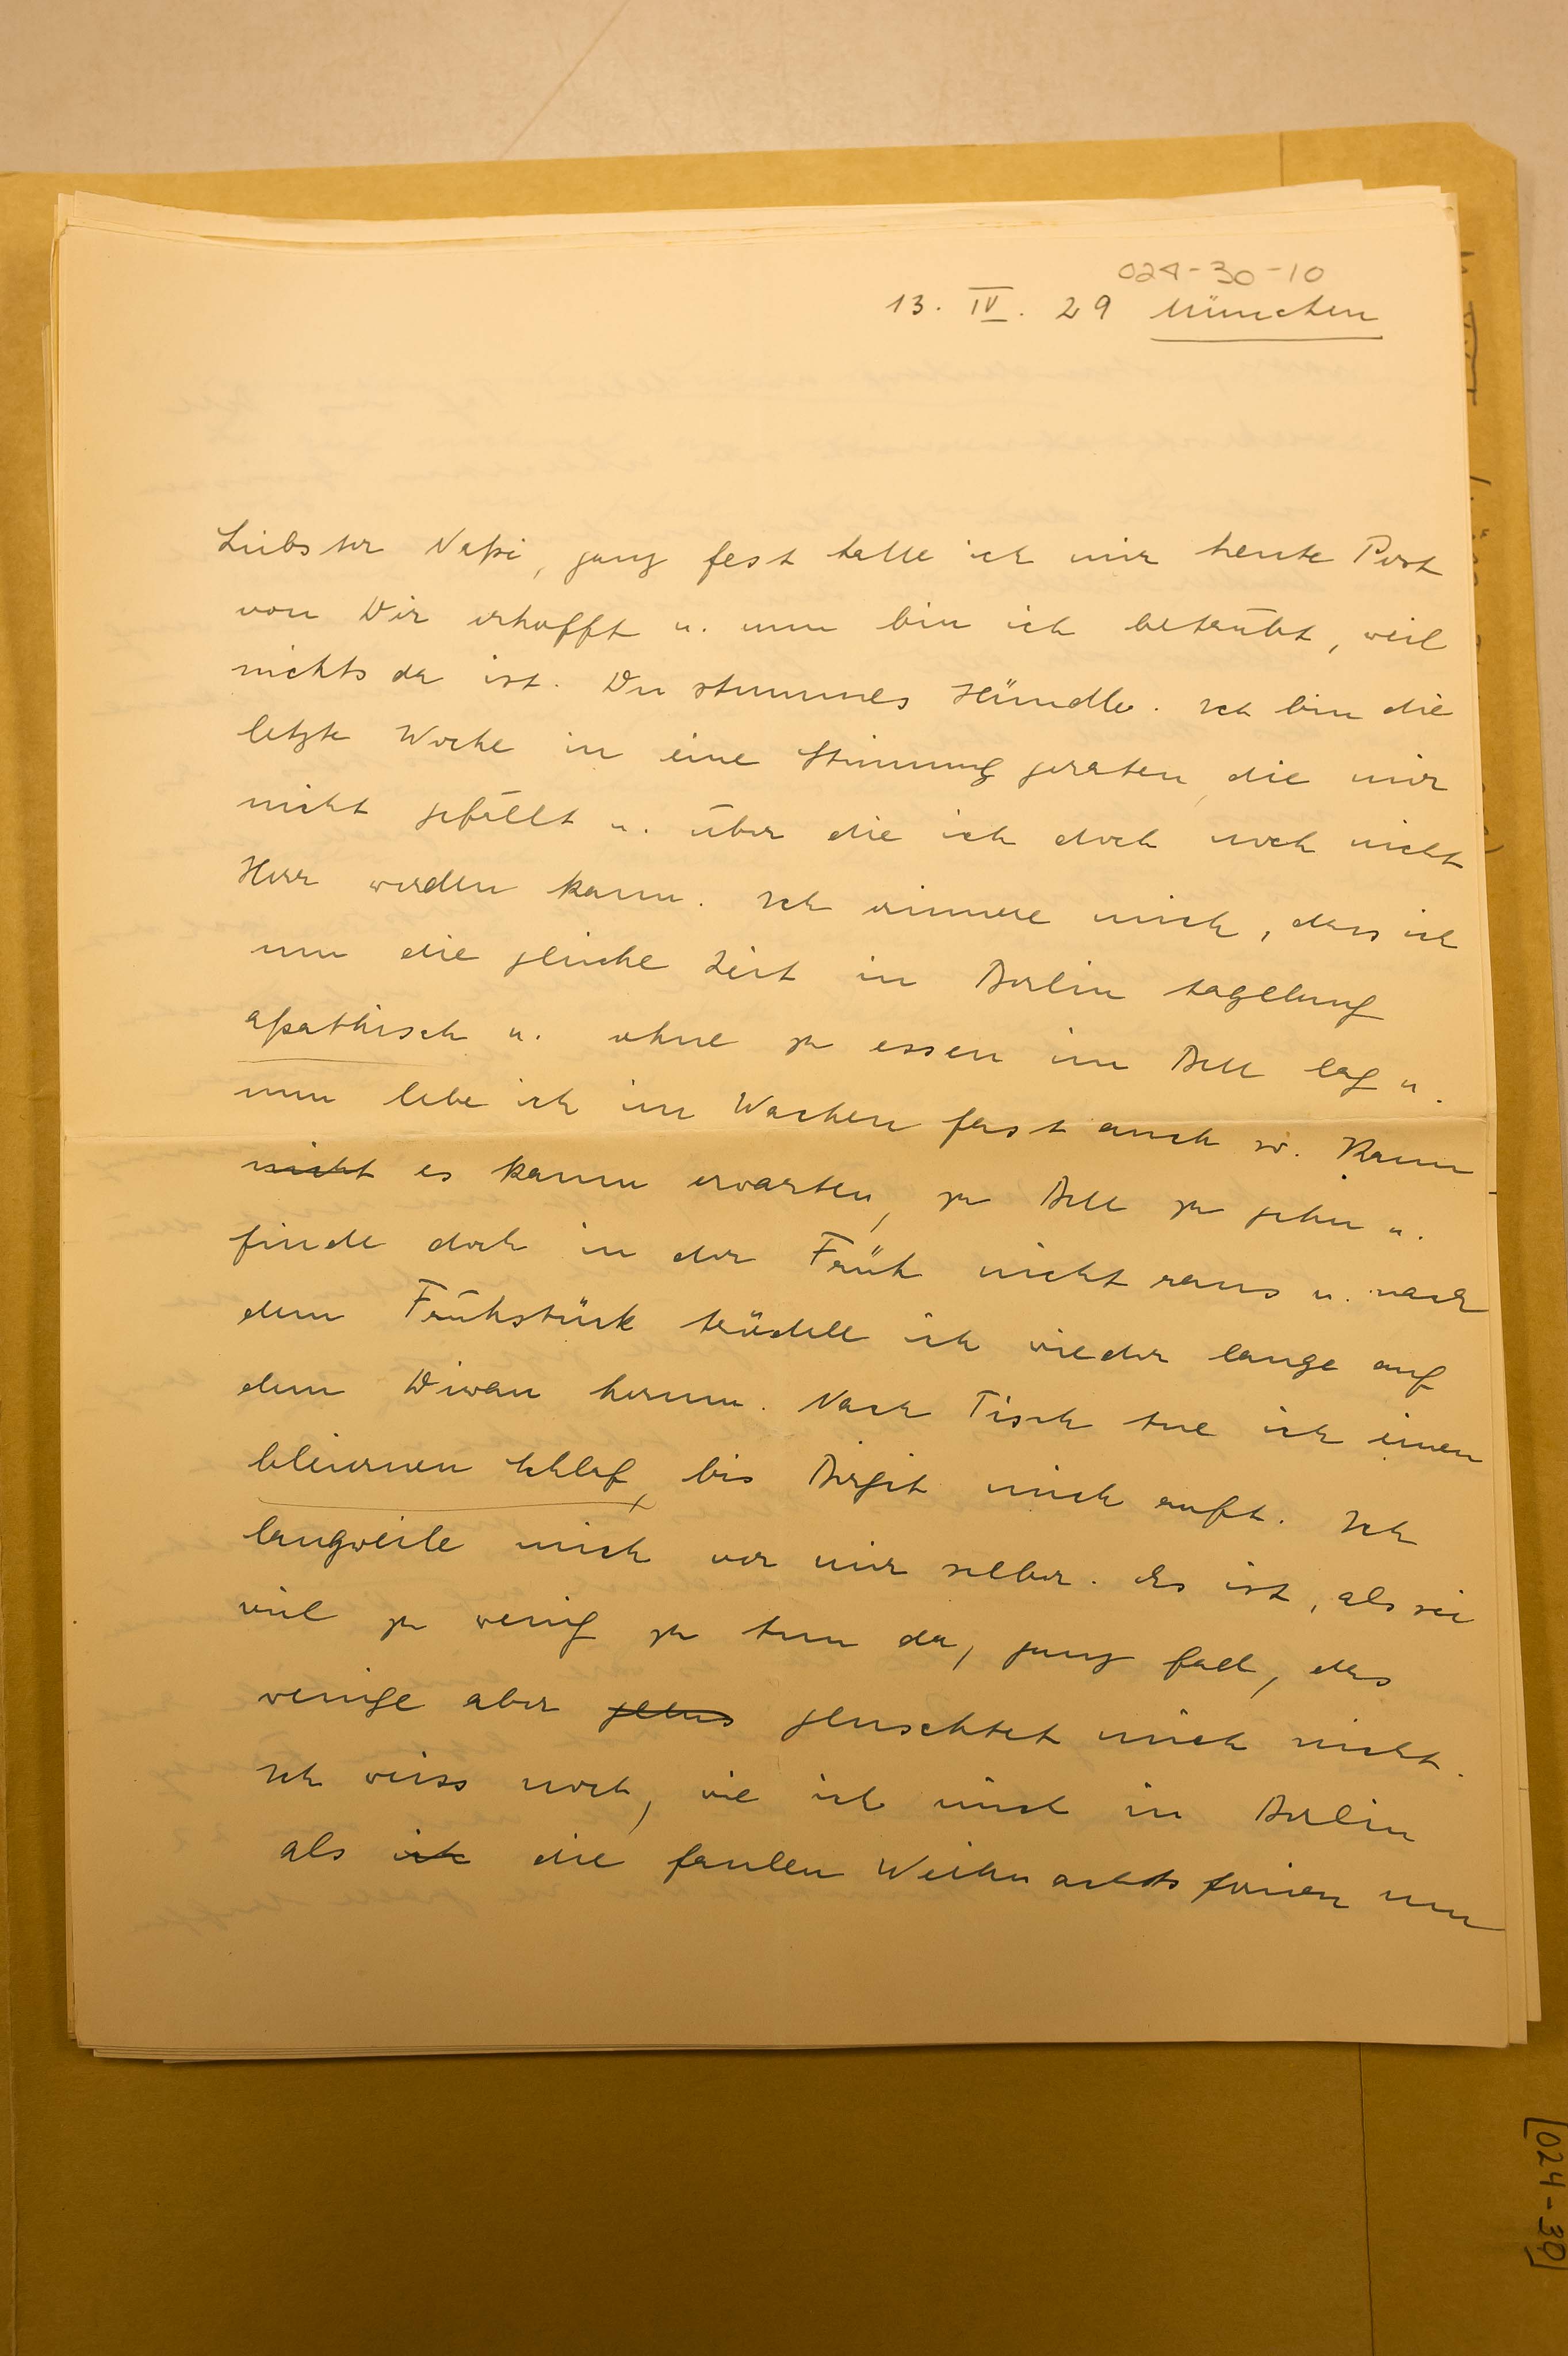 024-30-10
13. IV. 29 München
Liebster Napi, ganz fest hatte ich mir heute Post
von Dir erhofft u. nun bin ich betäubt, weil
nichts da ist. Du stummes Hündle. Ich bin die
letzte Woche in eine Stimmung geraten, die mir
nicht gefällt u. über die ich doch noch nicht
Herr werden kann. Ich erinnere mich, dass ich
um die gleiche Zeit in Berlin tagelang
apathisch u. ohne zu essen im Bett lag u.
nun lebe ich im Wachen fast auch so. Kann
nicht es kaum erwarten, zu Bett zu gehn u.
finde doch in der Früh nicht raus u. nach
dem Frühstück trödele ich wieder lange auf
dem Diwan herum. Nach Tisch tue ich einen
bleiernen Schlaf, bis Birgit mich ruft. Ich
langweile mich vor mir selber. Es ist, als sei
viel zu wenig zu tun da, ganz fad, das
wenige aber gelus gelüschtet mich nicht.
Ich weiss noch, wie ich mich in Berlin
als ich die faulen Weihnachtsferien um
[024-30]